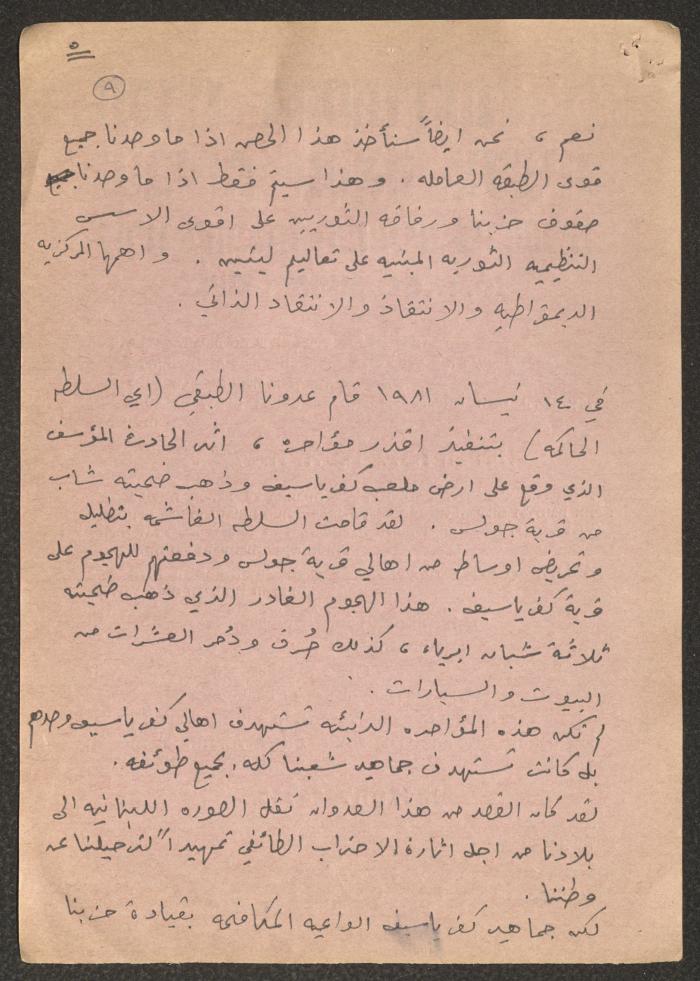 ٥
٩
نعم ، نحن ايضاً سنأخذ هذا الحصن اذا ما وحدنا جميع
قوى الطبقه العامله . وهذا سيتم فقط اذا ما وحدنا
صفوف حزبنا ورفاقه الثوريين على اقوى الاسس
التنظيميه الثوريه المبنيه على تعاليم لينين . واهمها المركزيه
الديمقراطيه والانتقاد والانتقاد الذاتي .
في ١٤ نيسان ١٩٨١ قام عدونا الطبقي (اي السلطه
الحاكمه) بتنفيذ اقذر مؤامره ، اثر الحادث المؤسف
الذي وقع على ارض ملعب كفرياسيف وذهب ضحيته شاب
من قرية جولس . لقد قامت السلطه الغاشمه بتظليل
وتحريض اوساط من اهالي قرية جولس ودفعتهم للهجوم على
قرية كفرياسيف . هذا الهجوم الغادر الذي ذهب ضحيته
ثلاثة شبان ابرياء ، كذلك حُرق ودُمر العشرات من
البيوت والسيارات .
لم تكن هذه المؤامره الدنيئه تستهدف اهالي كفرياسيف وحدهم
بل كانت تستهدف جماهير شعبنا كله ، بجميع طوئفه .
لقد كان القصد من هذا العدوان نقل الصوره اللبنانيه الى
بلادنا من اجل اثارة الاحتراب الطائفي تمهيداً لترحيلنا عن
وطننا .
لكن جماهير كفرياسيف الواعيه المكافحه بقيادة حزبنا